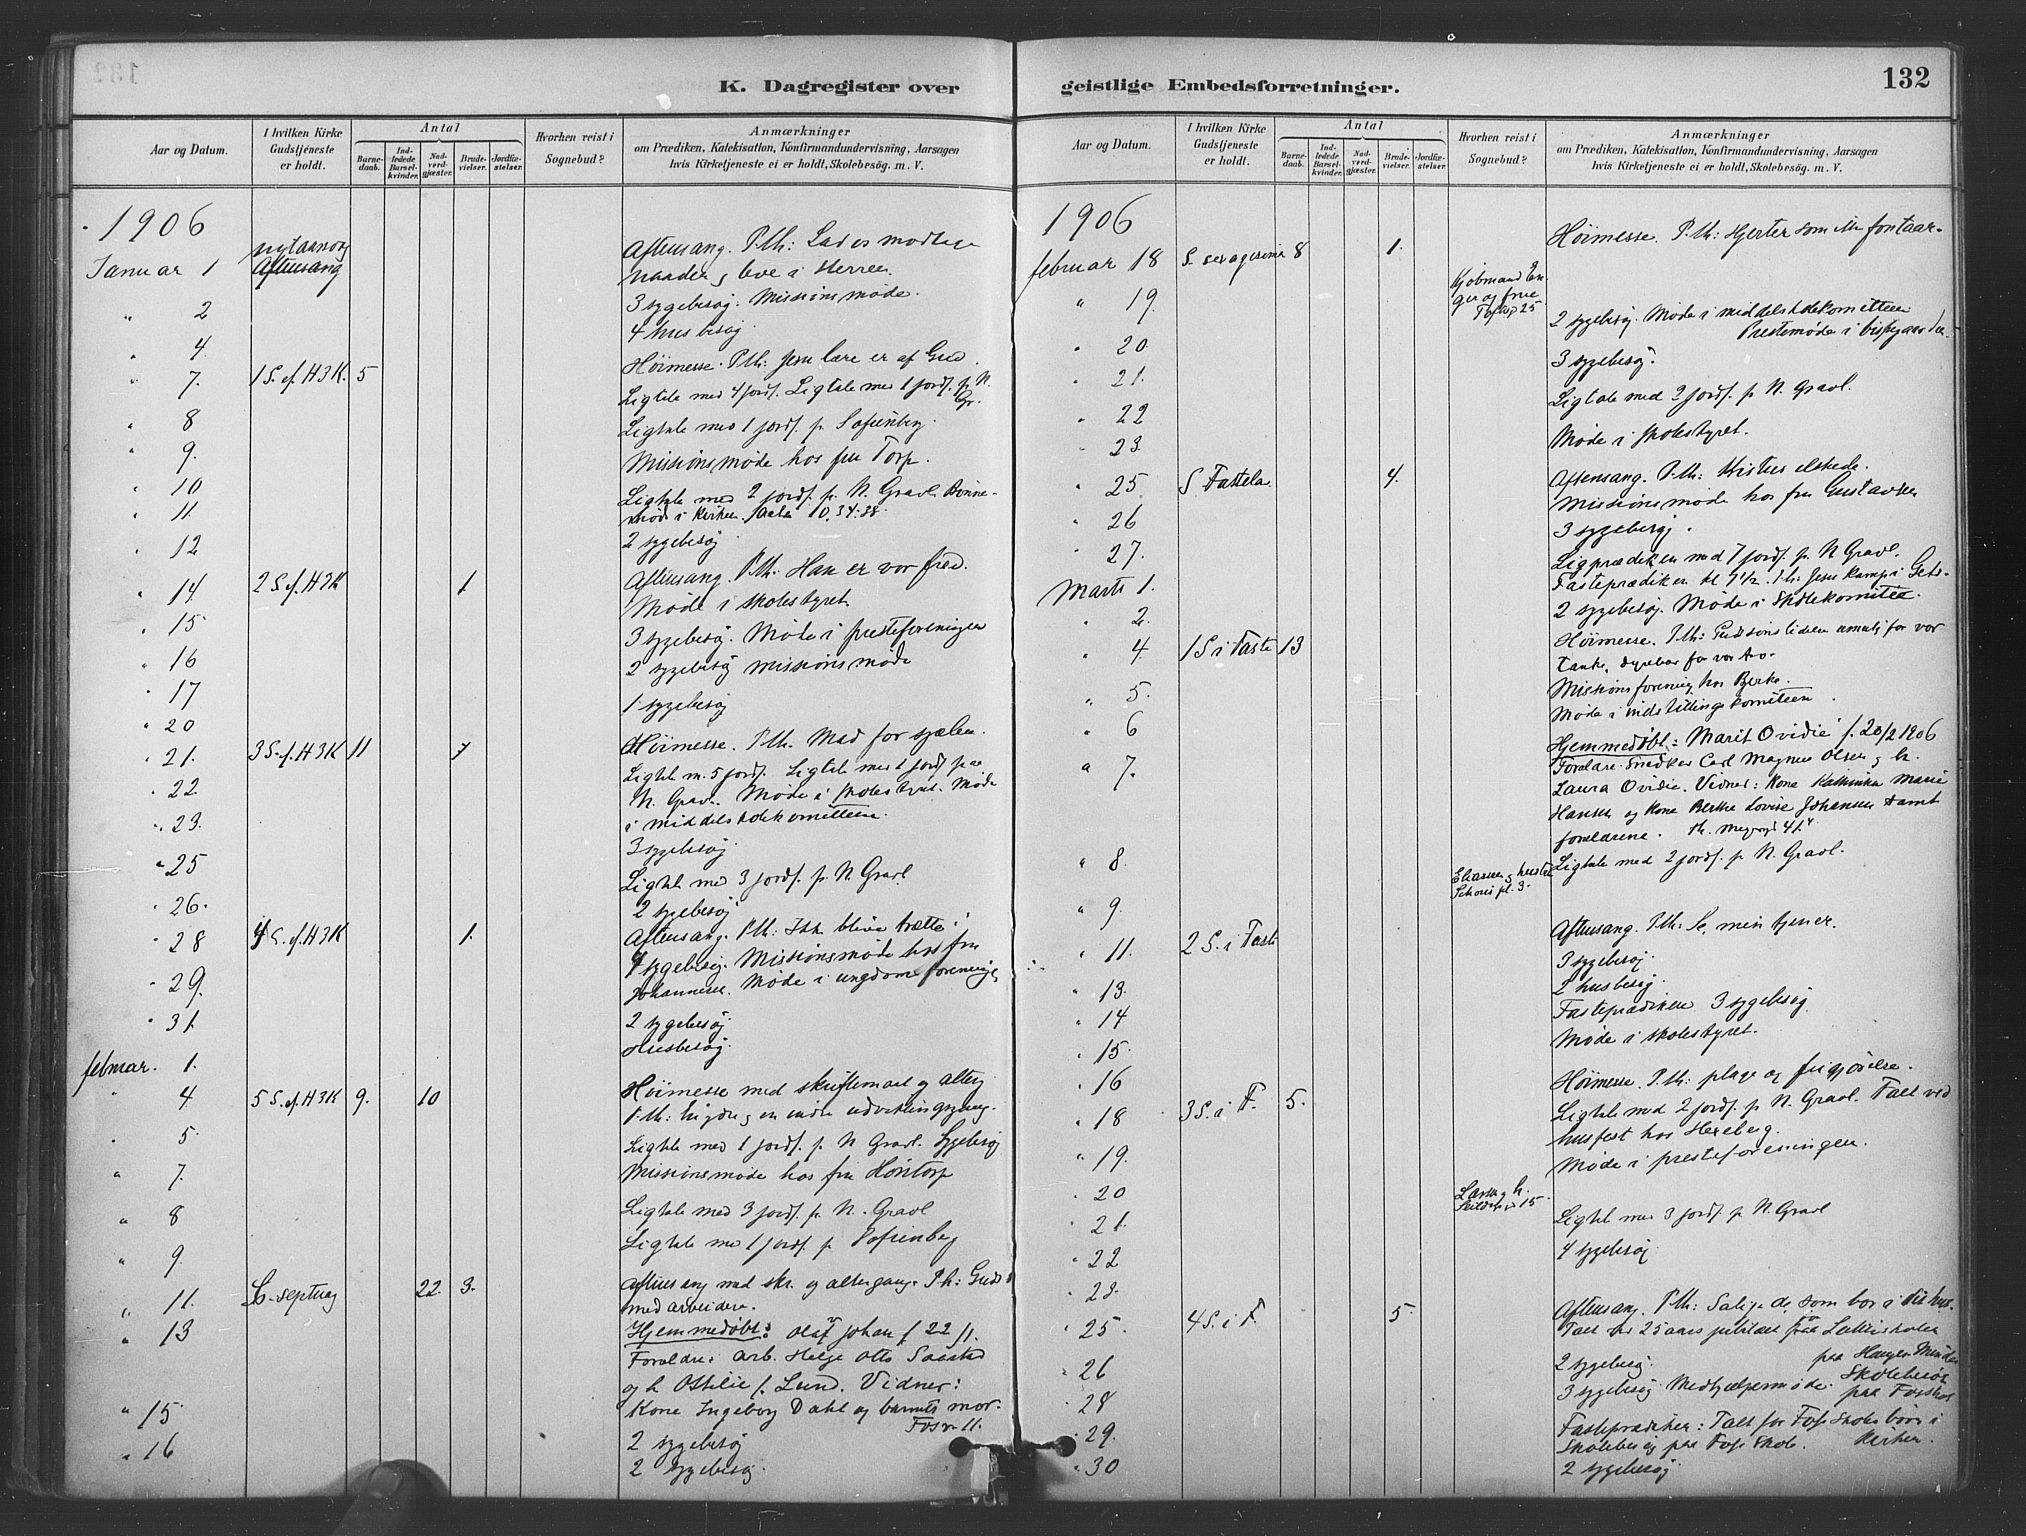 K. Dagregister over
Aar og Datum.
I hvilken Kirke Gudstjeneste er holdt.
Antal
Barnedaab.
Indledede Barselkvinder.
Nadverdgjæster.
Brudevielser.
Jordfæstelser.
Hvorhen reist i Sognebud?
Anmærkninger
om Prædiken, Katekisation, Konfirmandundervisning, Aarsagen
hvis Kirketjeneste ei er holdt, Skolebesög. m. V.
1906
Januar 1 Aftensang Aftensang. Pth: Lad os modtage
naade og leve i Herren.
" 2 3 sygebesøg. Missionsmøde.
" 4 4 husbesøg
" 7. 1 S. ef. H3K. 5 Høimesse. Pth: Jesu lære er af Gud.
" 8 Ligtale med 4 jordf. Ligtale med 1 jordf. p. N. Gr.
" 9. Ligtale med 1 jordf. p. Sofienberg.
" 10 Missionsmøde hos fru Torp.
" 11. Ligtale med 2 jordf. p. N. Gravl. Bønne-
møde i kirken.
" 12 2 sygebesøg
" 14 2 S. ef. H3K 1. Aftensang. Pth: Han er vor fred.
" 15 Møde i skolestyret.
" 16 3 sygebesøg. Møde i presteforeningen
" 17 2 sygebesøg missionsmøde
" 20 1 sygebesøg
" 21. 3 S. ef. H3K 11 7 Høimesse. Pth. Mad for sjælen.
" 22. Ligtal m. 5 jordf. Ligtale med 1 jordf paa
" 23. N. Gravl. Møde i skolestyret. Møde
i middelskolekomitteen.
" 25 3 sygebesøg.
" 26. Ligtale med 3 jordf. p. N. Gravl
2 sygebesøg
" 28 4 S. ef. H3K 1. Aftensang. Pth: Ikke blive trætte
" 29. 4 sygebesøg. Missionsmøde hos fru
Johannesen. Møde i ungdomsforeningen
" 31. 2 sygebesøg
februar. 1. Husbesøg.
" 4 5 S. ef. H3K 9. 10 Høimesse med skriftemaal og alterg
" 5 Ligtale med 1 jordf. p. N Gravl. Sygebesøg
" 7. Missionsmøde hos fru Høntorp
" 8 Ligtale med 3 jordf. p. N. Gravl
" 9. Ligtale med 1 jordf. p. Sofienberg
" 11. S. septuag 22. 3. Aftensang med skr. og altergang. Pth: Guds
medarbeidere.
" 13 Hjemmedøbt: Olaf Johan f 22/1.
Forældre: Arb. Helge Otto Saastad
og h. Ottilie f. Lund. Vidner:
Kone Ingeborg Dahl og barnets mor.
Fosv. 11.
" 15. 2 sygebesøg
" 16 2 sygebesøg.
geistlige Embedsforretninger.
132
Aar og Datum.
I hvilken Kirke Gudstjeneste er holdt.
Antal
Barnedaab.
Indledede Barselkvinder.
Nadverdgjæster.
Brudevielser.
Jordfæstelser.
Hvorhen reist i Sognebud?
Anmærkninger
om Prædiken, Katekisation, Konfirmandundervisning, Aarsagen
hvis Kirketjeneste ei er holdt, Skolebesög. m. V.
1906
februar 18 S. sexagesima 8 1. Høimesse. Pth: Hjerter som
" 19. Kjøbmand og frue 2 sygebesøg. Møde i middelskolekomitteen
Prestemøde i bispegaarden
" 20 3 sygebesøg.
" 21. Ligtale med 2 jordf. p N. Gravl.
" 22 Møde i skolestyret.
" 23.
" 25 S Fastela 4. Aftensang. Pth: Kristus elskede.
" 26 Missionsmøde hos fru Gustavsen
" 27. 3 sygebesøg.
Ligprædiken med 7 jordf. p. N Gravl.
Marts 1. Fasteprædiken kl 7 1/2. Pth: Jesu kamp i Gets-
" 2. 2 sygebesøg. Møde i Skolekomiteen.
" 4. 1 S i Faste 13 Høimesse. Pth: Gudssøns liden umulig for vor
tanke, dyrebar for vor tro.
" 5. Missionsforening hos Bjerke.
" 6 Møde i indstillingskomiteen.
" 7. Hjemmedøbt: Marit Ovidie f. 20/2 1906
Forældre: Snedker Carl Magnus Olsen og h.
Laura Ovidie. Vidner: Kone Kathinka Marie
Hansen og Kone Berthe Lovise Johansen samt
forældrene.
" 8. Eliassen og hustru Schous pl. 3. Ligtale med 2 jordf. p N. Gravl.
" 9.
" 11. 2 S. i Fast Aftensang. Pth: Se, min tjener.
" 13. 3 sygebesøg.
" 14 2 husbesøg.
" 15. Fasteprædiken 3 sygebesøg
" 16 Møde i skolestyret.
" 18 3 S. i F. 5. Høimesse. Pth: plage og frigjørelse.
" 19. Ligtale med 2 jordf. p N. Gravl. Talt ved
husfest hos Hexeberg.
" 20 Møde i presteforeningen.
" 21.
" 22 Ligtal med 3 jordf. p N. Gravl
" 23. 4 sygebesøg
" 25. 4 S. i F. 5. Aftensang. Pth: Salige de som bor i dit hus.
Talt ved 25 aars jubilæet
" 26 2 sygebesøg.
" 28 3 sygebesøg Medhjælpermøde. Skolebesøg
" 29. Fasteprædiken: Talt for Foss Skoles børn i
Skolebesøg paa Foss Skole. Kirken.
" 30 2 sygebesøg